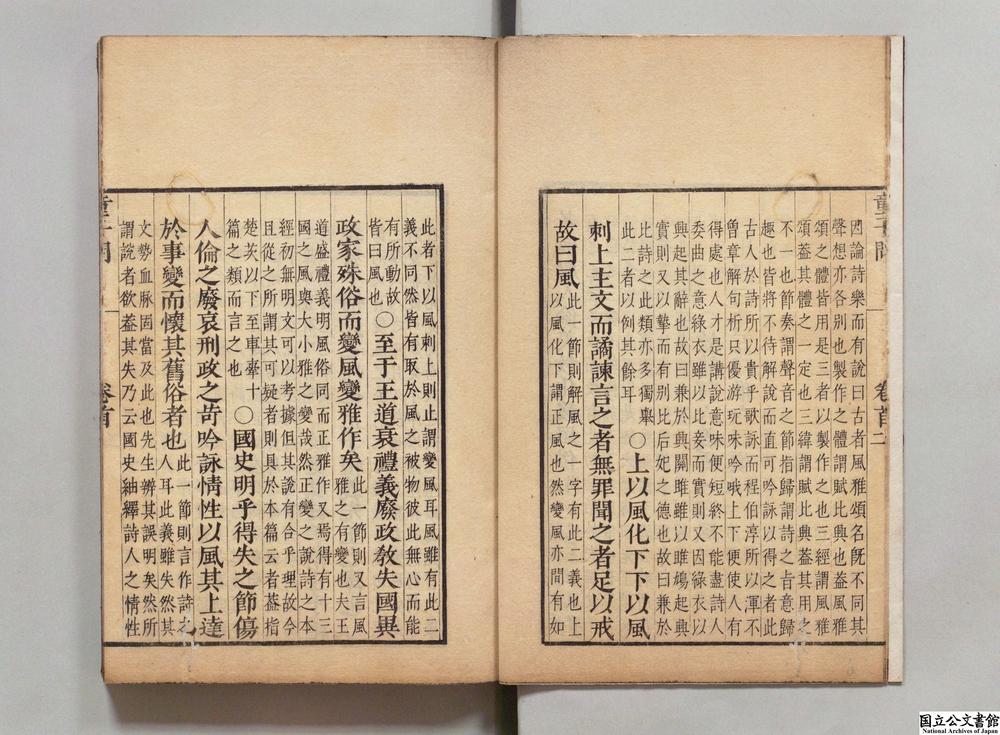 因論詩樂而有說曰古者風雅頌名旣不同其
聲想亦各別也製作之體謂賦比興也葢風雅
頌之體皆用是三者以製作之也三經謂風雅
頌葢其體之一定也三緯謂賦比興葢其用之
不一也節奏謂聲音之節指歸謂詩之㫖意歸
趣也皆將不待解說而直可吟詠以得之者此
古人於詩所以貴乎歌詠而程伯淳所以渾不
曽章解句析只優游玩味吟哦上下便使人有
得處也人才是講說意味便短終不能盡詩人
委曲之意綠衣雖以比妾而實則又因綠衣以
興起其辭也故曰兼於興關雎雖以雎鳩起興
實則又以摯而有别比后妃之德也故曰兼於
比詩之此類亦多獨舉
此二者以例其餘耳
○上以風化下下以風
刺上主文而譎諫言之者無罪聞之者足以戒
故曰風
此一節則解風之一字有此二義也上
以風化下謂正風也然變風亦間有如
童子問
卷首
二
此者下以風刺上則止謂變風耳風雖有此二
義不同然皆有取於風之被物彼此無心而能
有所動故
皆曰風也
○至于王道衰禮義廢政教失國異
政家殊俗而變風變雅作矣
此一節則又言風
雅之有變也夫王
道盛禮義明風俗同而正雅作又焉得有十三
國之風與大小雅之變哉然正變之說詩之本
經初無明文可以考據但其說有合乎理故今
且從之所謂其可疑者則具於本篇云者葢指
楚茨以下至車舝十
篇之類而言之也
○國史明乎得失之節傷
人倫之廢哀刑政之苛吟詠情性以風其上達
於事變而懷其舊俗者也
此一節則言作詩之
人耳此義雖失然其
文勢血脉固當及此也先生辨其誤明矣然所
謂說者欲葢其失乃云國史紬釋詩人之情性
童子問
卷首
国立公文書館
National Archives of Japan